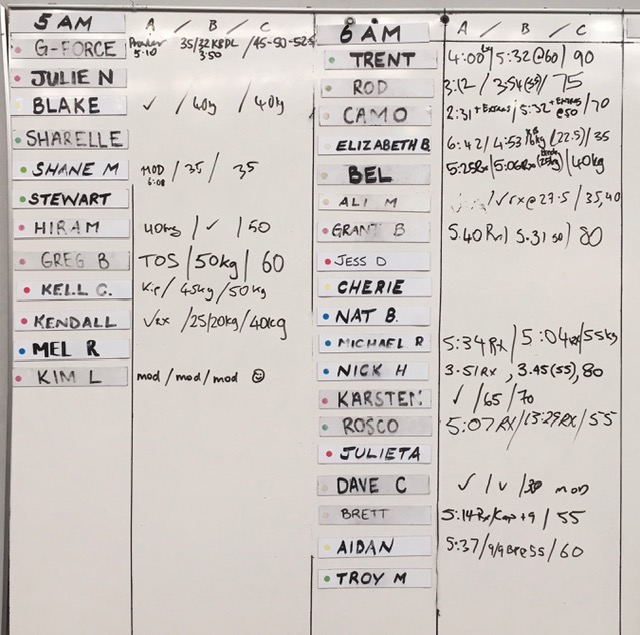 5 AM A / B / C
G-FORCE Prowler 5:10 35/32KBDL 3:50 /45-50-52.5
JULIE N
BLAKE ✓ / 40kg / 40kg
SHARELLE
SHANE M MOD 6:08 / 35 / 35
STEWART
HIRAM 40kg / ✓ / 50
GREG B TOS / 50kg / 60
KELL C. Kip / 45kg / 50kg
KENDALL ✓RX / 25/20kg / 40kg
MEL R
KIM L mod / mod / mod ☺
6 AM A / B / C
TRENT 4:00 / 5:32 @60 / 90
ROD 3:12 / 3:54 / 75
CAMO 2:31 + Extras / 5:32 + Extras @50 / 70
ELIZABETH B 6:42 / 4:53 (22.5) / 35
BEL 5:25Rx / 5:06Rx (25kg) / 40kg
ALI M / ✓rx @ 27.5 / 35, 40
GRANT B 5.40 Rx / 5.31 50 / 80
JESS D
CHERIE
NAT B.
MICHAEL R 5:34 Rx / 5:04Rx / 55kg
NICK H 3.51 Rx , 3.45 (55), 80
KARSTEN ✓ / 65 / 70
ROSCO 5:07 RX / 13:29 RX / 55
JULIETA
DAVE C ✓ / ✓ / 30 mod
BRETT 5:14 Rx / Cap + 9 / 55
AIDAN 5:37 / 9/9 / 60
TROY M